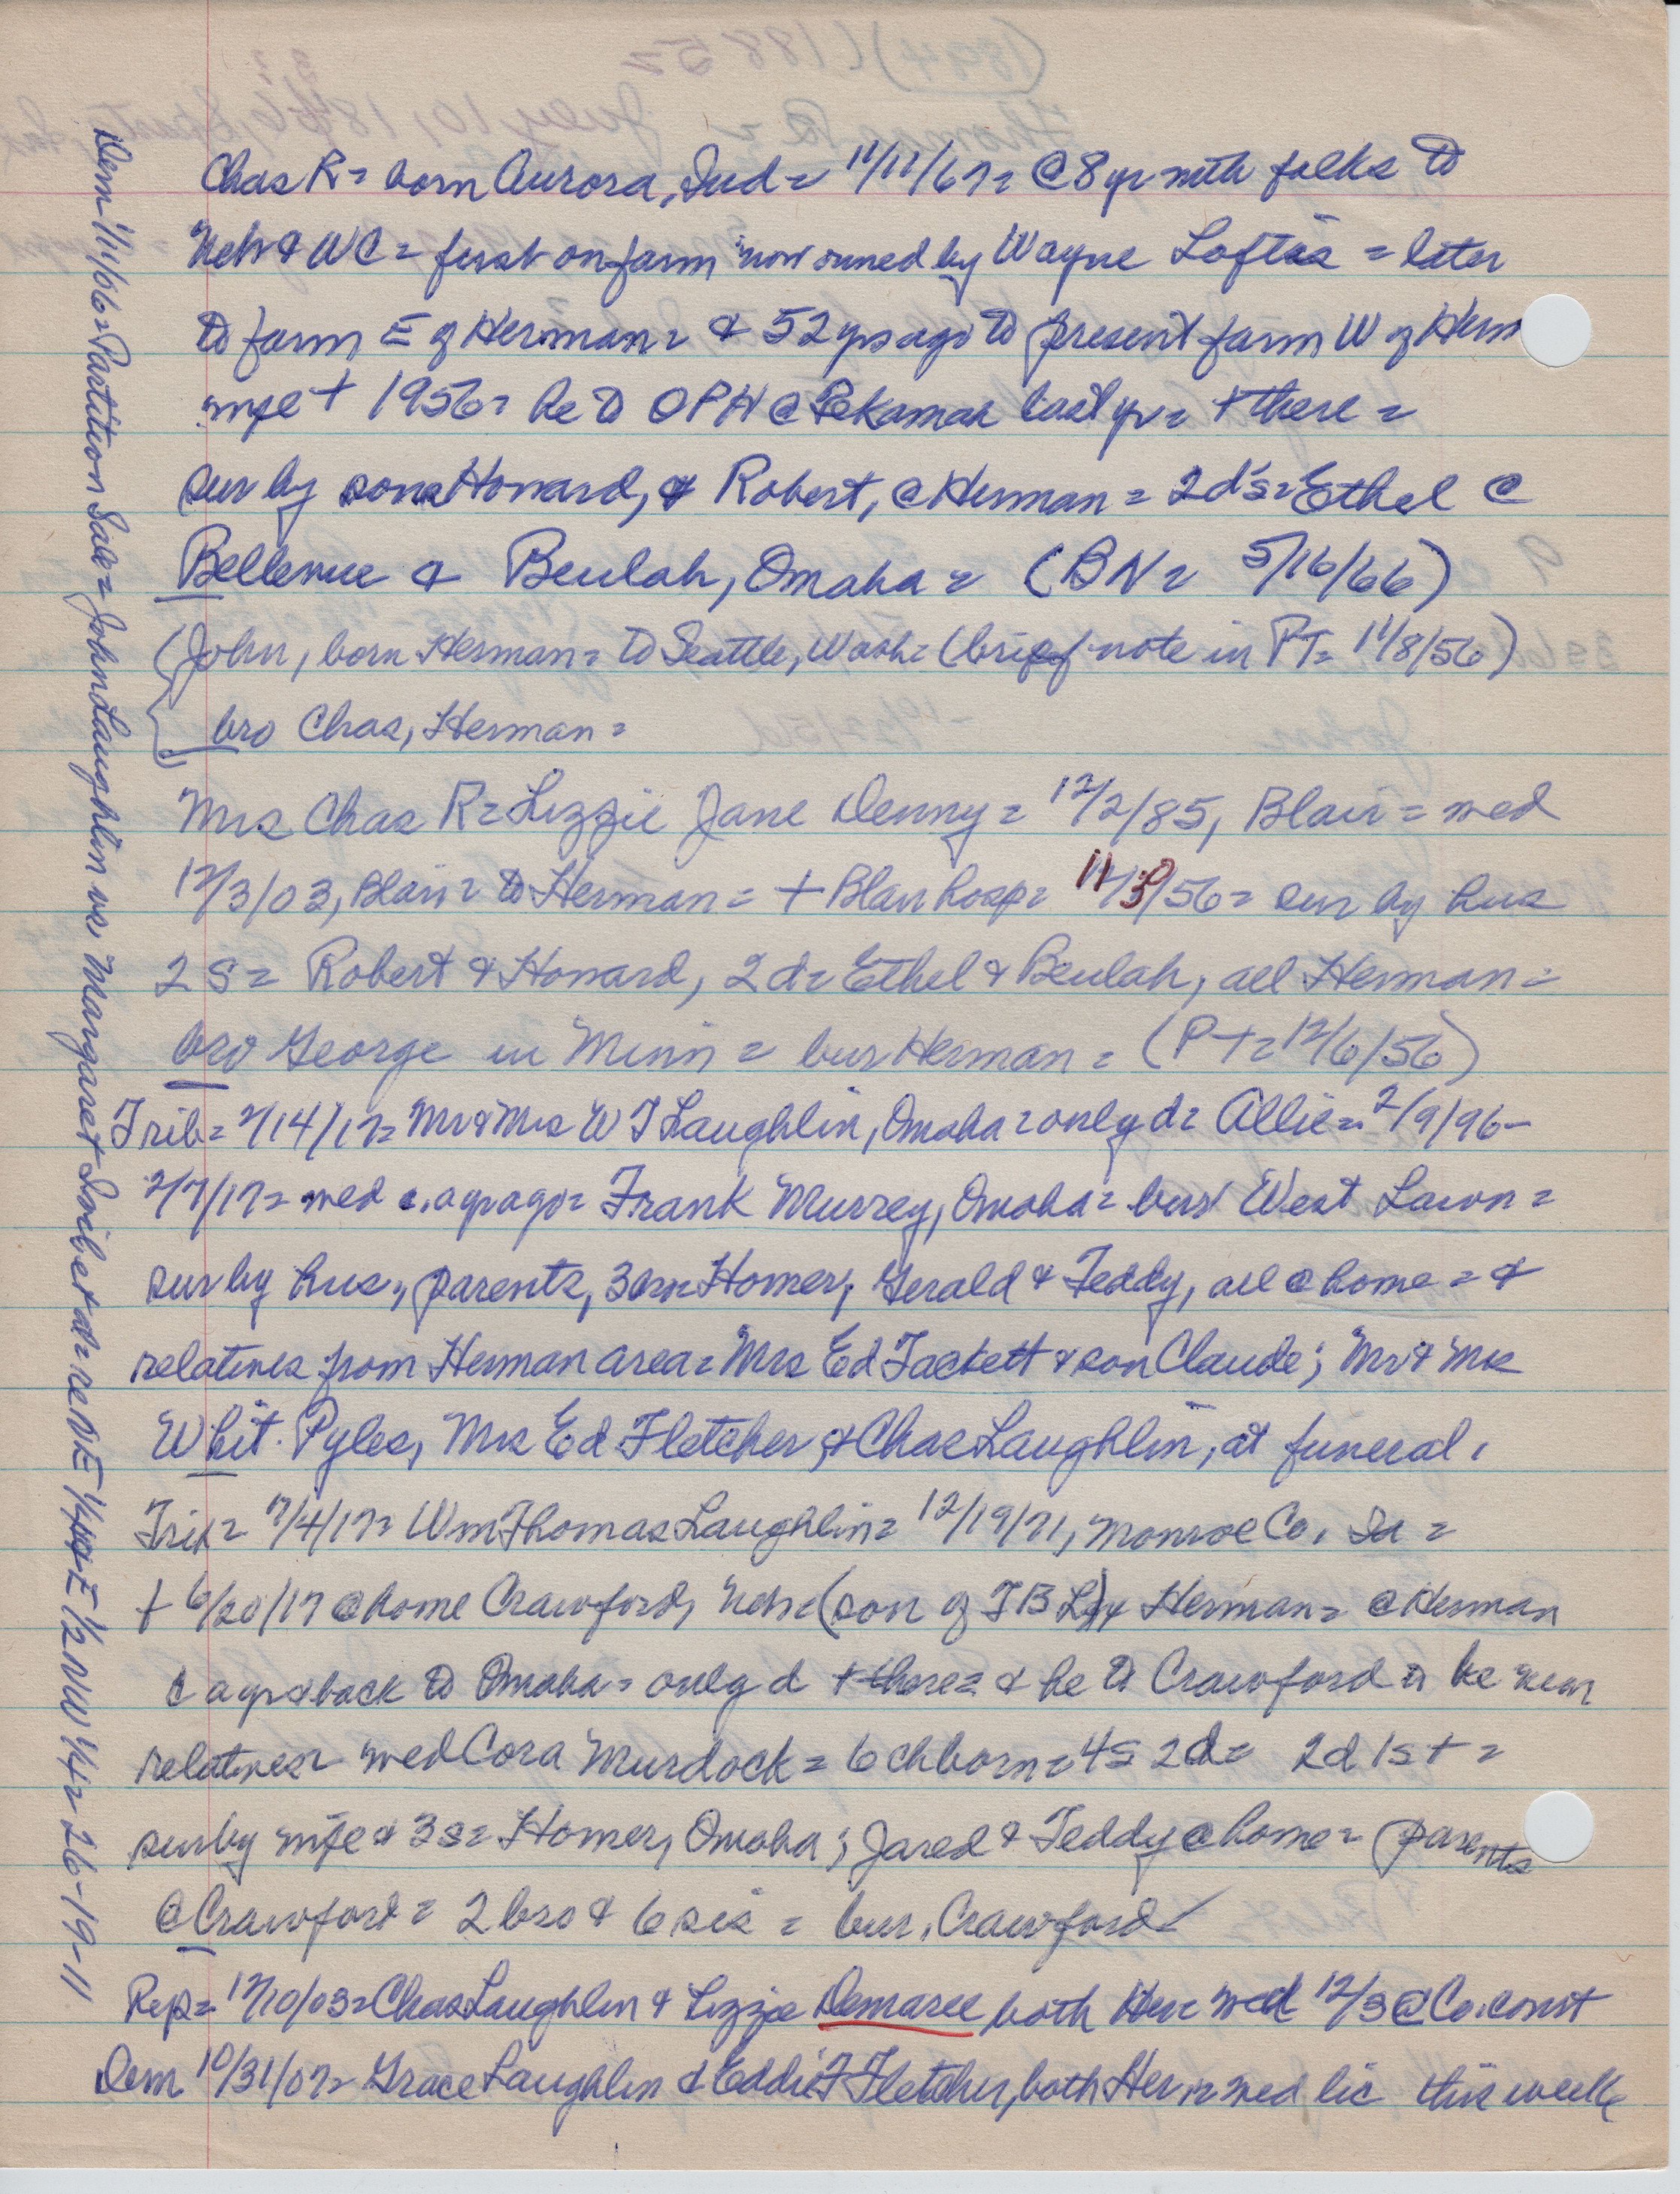 Chas R = born Aurora, Ind = 11/11/67 = @ 8 yr with folks to
Neb & WC = first on farm now owned by Wayne Loftis = later
to farm E of Herman = & 52 yrs ago to present farm W of Herm
wife + 1956 = he to OPH @ Tekamah last yr = + there =
sur by sons Howard, & Robert, @ Herman = 2 d's = Ethel @
Bellevue & Beulah, Omaha = (BN = 5/16/66)
(John, born Herman = to Seattle, Wash = (brief note in PT = 11/8/56)
bro Chas, Herman =
Mrs Chas R = Lizzie Jane Denny = 12/2/85, Blair = wed
12/3/03, Blair = to Herman = + Blair hosp = 11/30/56 = sur by hus
2 s = Robert & Howard, 2 d = Ethel & Beulah, all Herman =
bro George in Minn = bur Herman = (PT = 12/6/56)
Trib = 2/14/17 = Mr & Mrs W T Laughlin, Omaha = only d = Allie = 2/9/96 -
2/7/17 = wed c. a yr ago = Frank Murrey, Omaha = bur West Lawn =
sur by hus, parents, 3 bro Homer, Gerald & Teddy, all @ home = &
relatives from Herman area = Mrs Ed Tackett & son Claude; Mr & Mrs
Whit. Pyles, Mrs Ed Fletcher, & Chas Laughlin, at funeral.
Trib = 7/4/17 = Wm Thomas Laughlin = 12/19/71, Monroe Co. Ia =
+ 6/20/17 @ home Crawford, Neb = (son of T B L) Herman = @ Herman
c a yr & back to Omaha = only d + there = & he to Crawford to be near
relatives = wed Cora Murdock = 6 ch born = 4 s 2 d = 2 d 1 s + =
sur by wife & 3 s = Homer, Omaha; Jared & Teddy @ home = parents
@ Crawford = 2 bro & 6 sis = bur. Crawford
Rep = 12/10/03 = Chas Laughlin & Lizzie Demaree both Her = wed 12/3 @ Co. court
Dem 10/31/07 = Grace Laughlin & Eddie F Fletcher, both Her = wed lic this week
Dem 1/11/06 = Partition Sale = John Laughlin vs. Margaret et al = re SE 1/4 E 1/2 NW 1/4 = 26-19-11